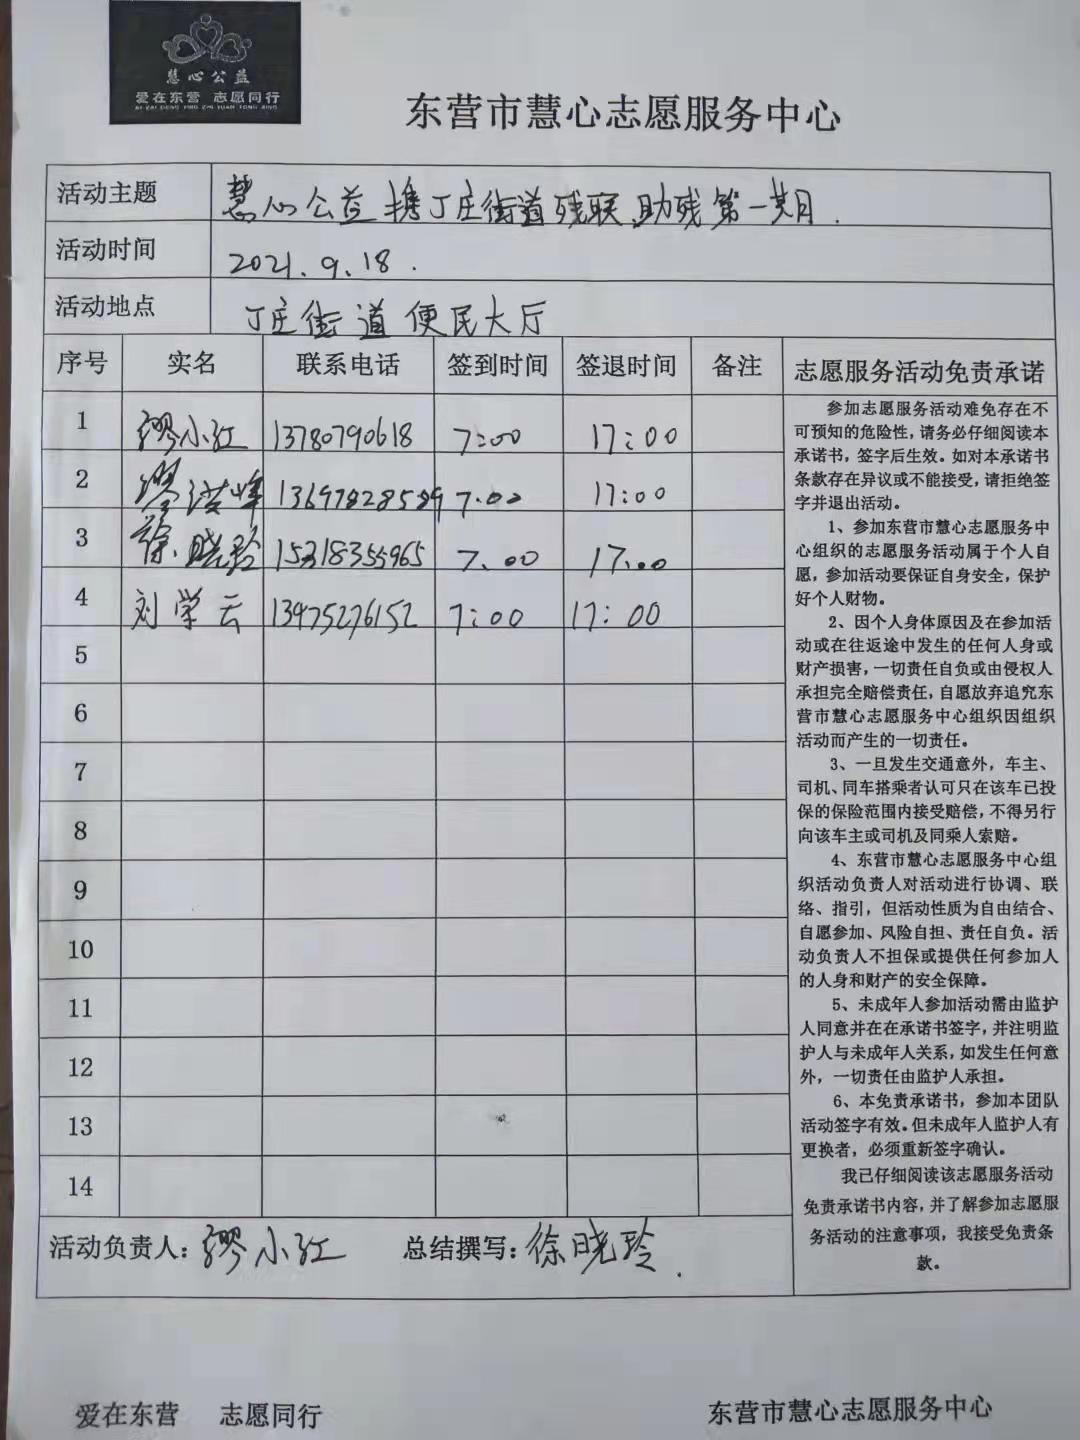 慧心公益
爱在东营 志愿同行
AI ZAI DONG YING ZHI YUAN TONG XING
东营市慧心志愿服务中心
活动主题 慧心公益携丁庄街道残联助残第一期.
活动时间 2021.9.18.
活动地点 丁庄街道便民大厅
序号 实名 联系电话 签到时间 签退时间 备注
1 缪小红 13780790618 7:00 17:00
2 缪洪峰 13697828589 7.00 17:00
3 徐晓玲 15318355965 7.00 17:00
4 刘学云 13475276152 7:00 17:00
5
6
7
8
9
10
11
12
13
14
活动负责人：缪小红 总结撰写：徐晓玲.
志愿服务活动免责承诺
参加志愿服务活动难免存在不
可预知的危险性，请务必仔细阅读本
承诺书，签字后生效。如对本承诺书
条款存在异议或不能接受，请拒绝签
字并退出活动。
1、参加东营市慧心志愿服务中
心组织的志愿服务活动属于个人自
愿，参加活动要保证自身安全，保护
好个人财物。
2、因个人身体原因及在参加活
动或在往返途中发生的任何人身或
财产损害，一切责任自负或由侵权人
承担完全赔偿责任，自愿放弃追究东
营市慧心志愿服务中心组织因组织
活动而产生的一切责任。
3、一旦发生交通意外，车主、
司机、同车搭乘者认可只在该车已投
保的保险范围内接受赔偿，不得另行
向该车主或司机及同乘人索赔。
4、东营市慧心志愿服务中心组
织活动负责人对活动进行协调、联
络、指引，但活动性质为自由结合、
自愿参加、风险自担、责任自负。活
动负责人不担保或提供任何参加人
的人身和财产的安全保障。
5、未成年人参加活动需由监护
人同意并在在承诺书签字，并注明监
护人与未成年人关系，如发生任何意
外，一切责任由监护人承担.
6、本免责承诺书，参加本团队
活动签字有效。但未成年人监护人有
更换者，必须重新签字确认。
我已仔细阅读该志愿服务活动
免责承诺书内容，并了解参加志愿服
务活动的注意事项，我接受免责条
款。
爱在东营 志愿同行 东营市慧心志愿服务中心